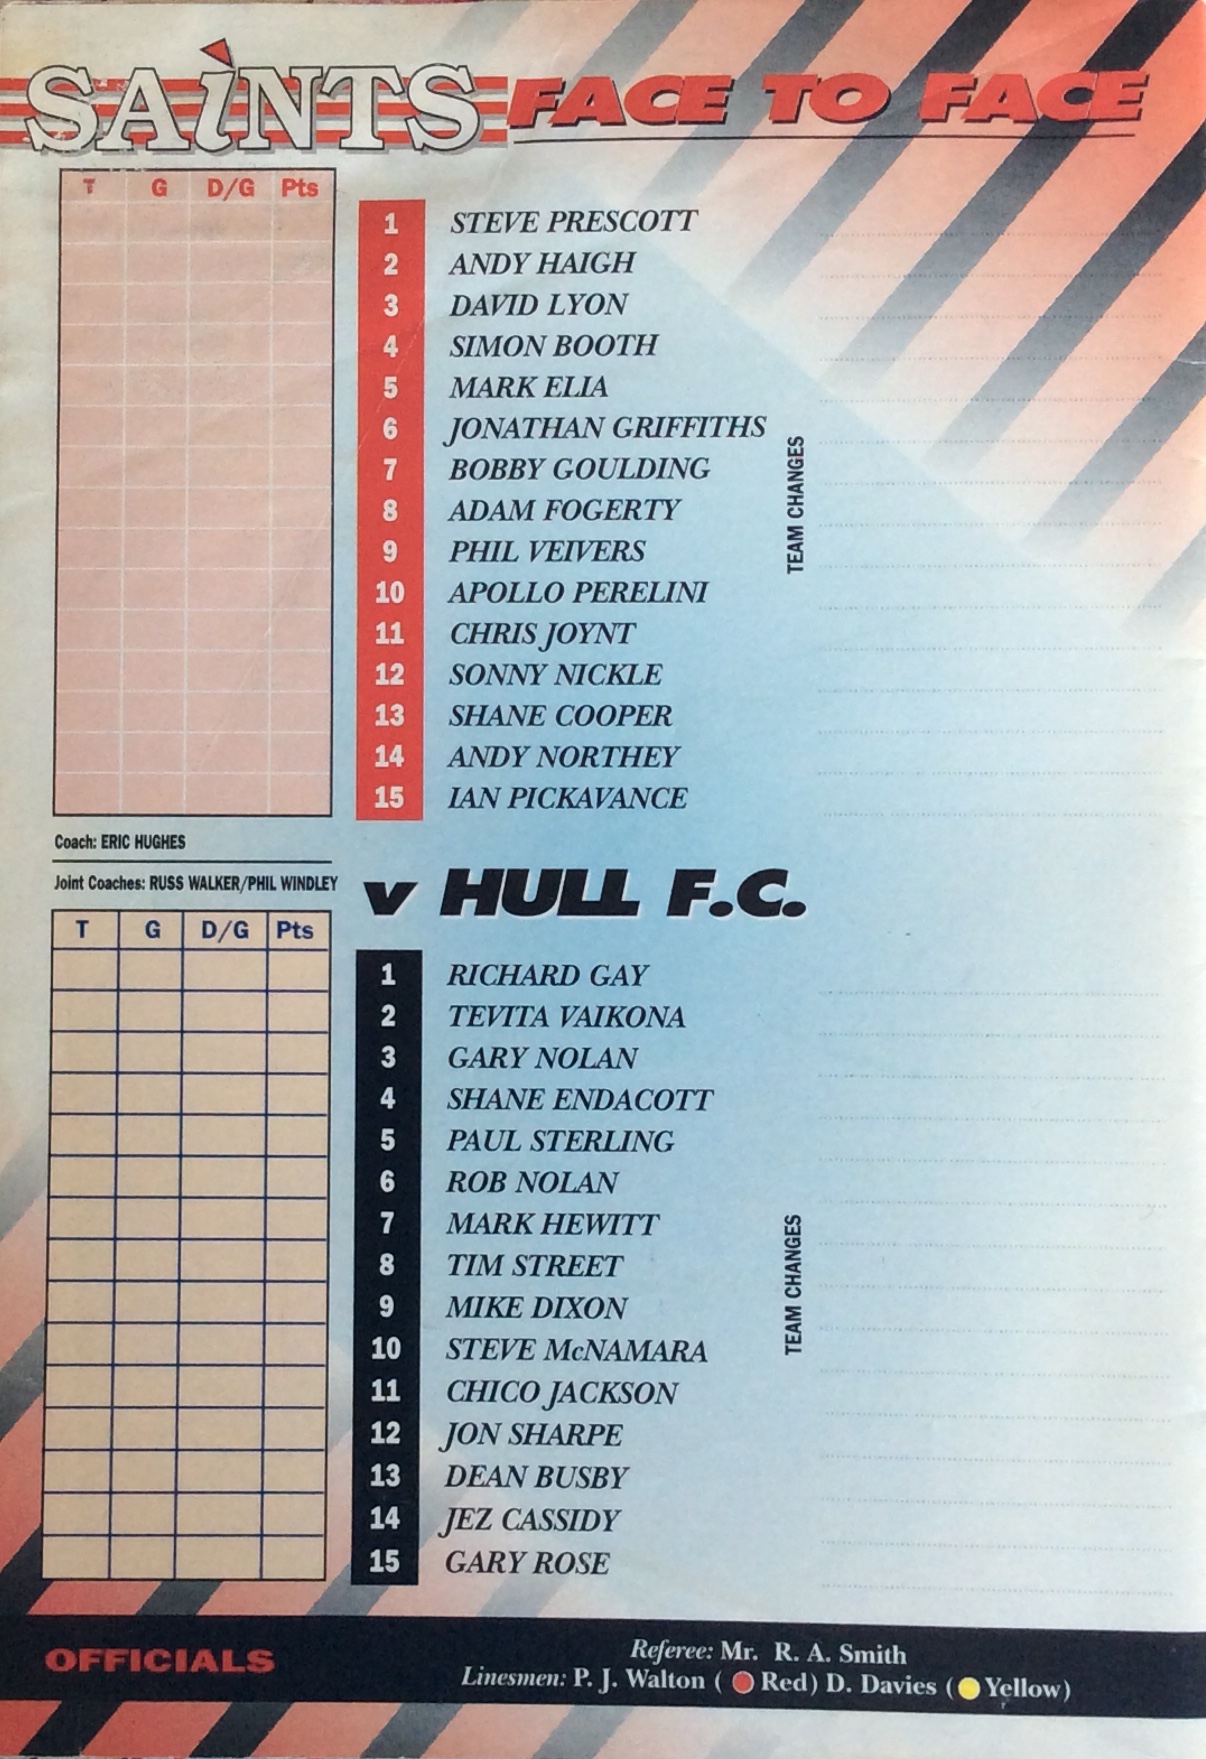 SAiNTS FACE TO FACE
T G D/G Pts
1 STEVE PRESCOTT
2 ANDY HAIGH
3 DAVID LYON
4 SIMON BOOTH
5 MARK ELIA
6 JONATHAN GRIFFITHS
7 BOBBY GOULDING
8 ADAM FOGERTY
9 PHIL VEIVERS
10 APOLLO PERELINI
11 CHRIS JOYNT
12 SONNY NICKLE
13 SHANE COOPER
14 ANDY NORTHEY
15 IAN PICKAVANCE
TEAM CHANGES
Coach: ERIC HUGHES
Joint Coaches: RUSS WALKER/PHIL WINDLEY
v HULL F.C.
T G D/G Pts
1 RICHARD GAY
2 TEVITA VAIKONA
3 GARY NOLAN
4 SHANE ENDACOTT
5 PAUL STERLING
6 ROB NOLAN
7 MARK HEWITT
8 TIM STREET
9 MIKE DIXON
10 STEVE McNAMARA
11 CHICO JACKSON
12 JON SHARPE
13 DEAN BUSBY
14 JEZ CASSIDY
15 GARY ROSE
TEAM CHANGES
OFFICIALS
Referee: Mr. R. A. Smith
Linesmen: P. J. Walton (🔴 Red) D. Davies (🟡 Yellow)